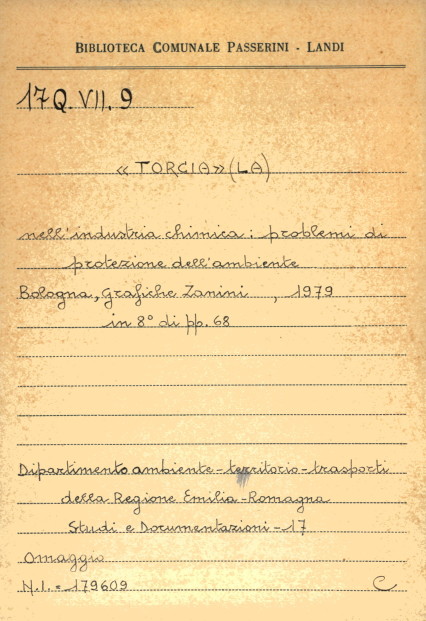 BIBLIOTECA COMUNALE PASSERINI - LANDI
17Q. VII. 9
«TORCIA» (LA)
nell'industria chimica: problemi di
protezione dell'ambiente
Bologna, Grafiche Zanini , 1979
in 8° di pp. 68
Dipartimento ambiente-territorio-trasporti
della Regione Emilia-Romagna
Studi e Documentazioni - 17
Omaggio
N.I. = 179609 C